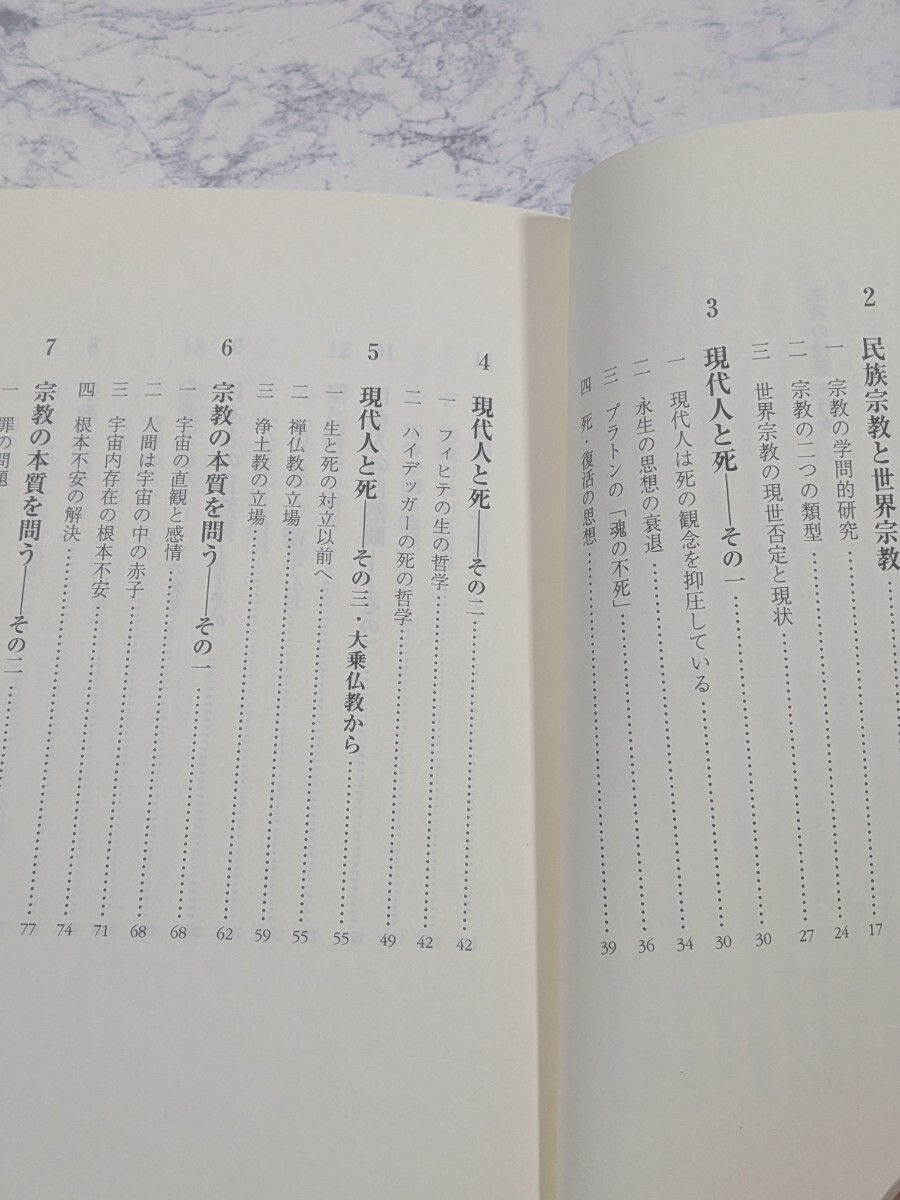 2 民族宗教と世界宗教
一 宗教の学問的研究 17
二 宗教の二つの類型 24
三 世界宗教の現世否定と現状 27
3 現代人と死――その一 30
一 現代人は死の観念を抑圧している 30
二 永生の思想の衰退 34
三 プラトンの「魂の不死」 36
四 死・復活の思想 39
4 現代人と死――その二 42
一 フィヒテの生の哲学 42
二 ハイデッガーの死の哲学 49
5 現代人と死――その三・大乗仏教から 55
一 生と死の対立以前へ 55
二 禅仏教の立場 59
三 浄土教の立場 62
6 宗教の本質を問う――その一 68
一 宇宙の直観と感情 68
二 人間は宇宙の中の赤子 71
三 宇宙内存在の根本不安 74
四 根本不安の解決 77
7 宗教の本質を問う――その二
一 罪の問題